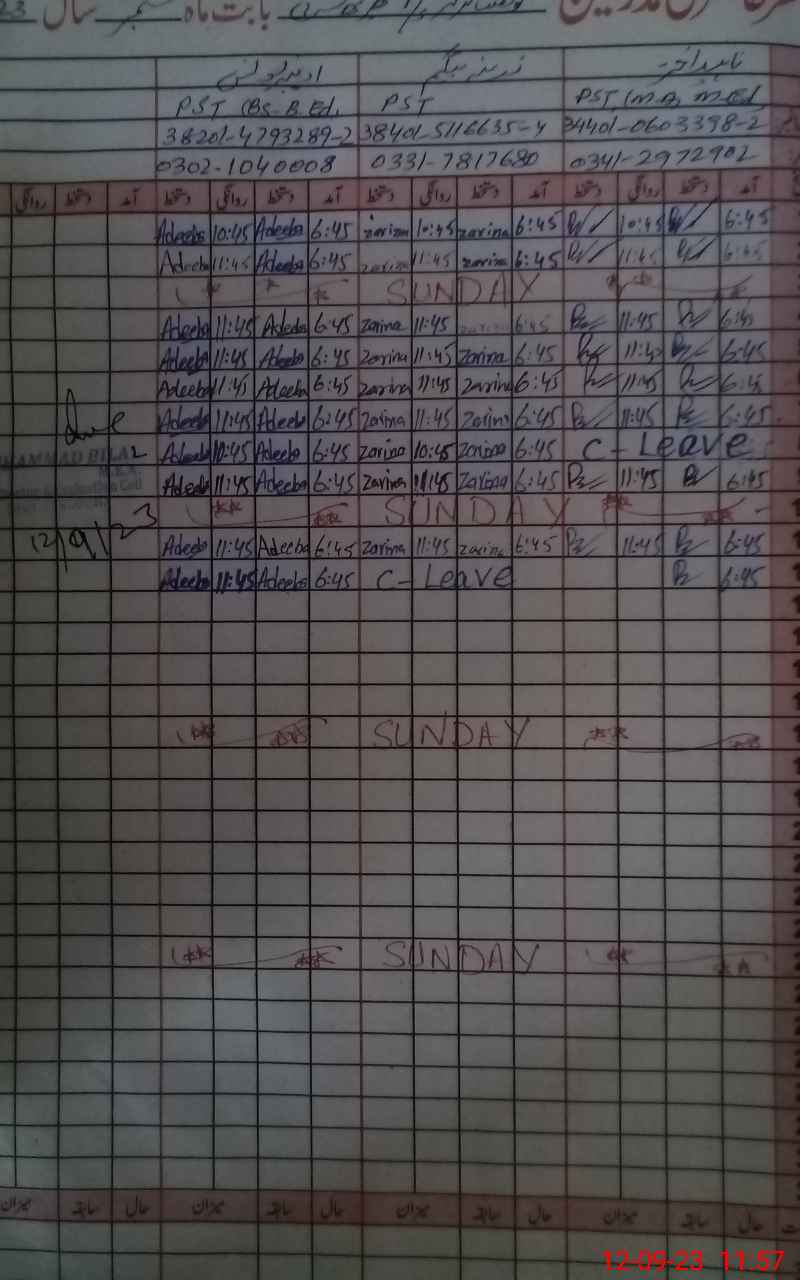 مدرسین بابت ماہ ستمبر سال 23
زرینہ بیگم
PST (Bs. B.Ed. PST PST (M.A, M.Ed)
38201-4793289-2 38401-5116635-4 34401-0603398-2
0302-1040008 0331-7817680 0341-2972902
آمد دستخط روانگی دستخط آمد دستخط روانگی دستخط آمد دستخط روانگی دستخط آمد دستخط روانگی
Adeeba 10:45 Adeeba 6:45 zarina 10:45 zarina 6:45 10:45 6:45
Adeeba 11:45 Adeeba 6:45 zarina 11:45 zarina 6:45 11:45 6:45
SUNDAY
Adeeba 11:45 Adeeba 6:45 Zarina 11:45 zarina 6:45 11:45 6:45
Adeeba 11:45 Adeeba 6:45 Zarina 11:45 Zarina 6:45 11:45 6:45
Adeeba 11:45 Adeeba 6:45 Zarina 11:45 Zarina 6:45 11:45 6:45
Adeeba 11:45 Adeeba 6:45 Zarina 11:45 Zarina 6:45 11:45 6:45
Adeeba 10:45 Adeeba 6:45 Zarina 10:45 Zarina 6:45 C-Leave
Adeeba 11:45 Adeeba 6:45 Zarina 11:45 Zarina 6:45 11:45 6:45
MUHAMMAD BILAL
SUNDAY
12/9/23
Adeeba 11:45 Adeeba 6:45 Zarina 11:45 zarina 6:45 11:45 6:45
Adeeba 11:45 Adeeba 6:45 C-Leave 6:45
SUNDAY
SUNDAY
حال سابقہ میزان حال سابقہ میزان حال سابقہ میزان حال سابقہ میزان
12-09-23 11:57